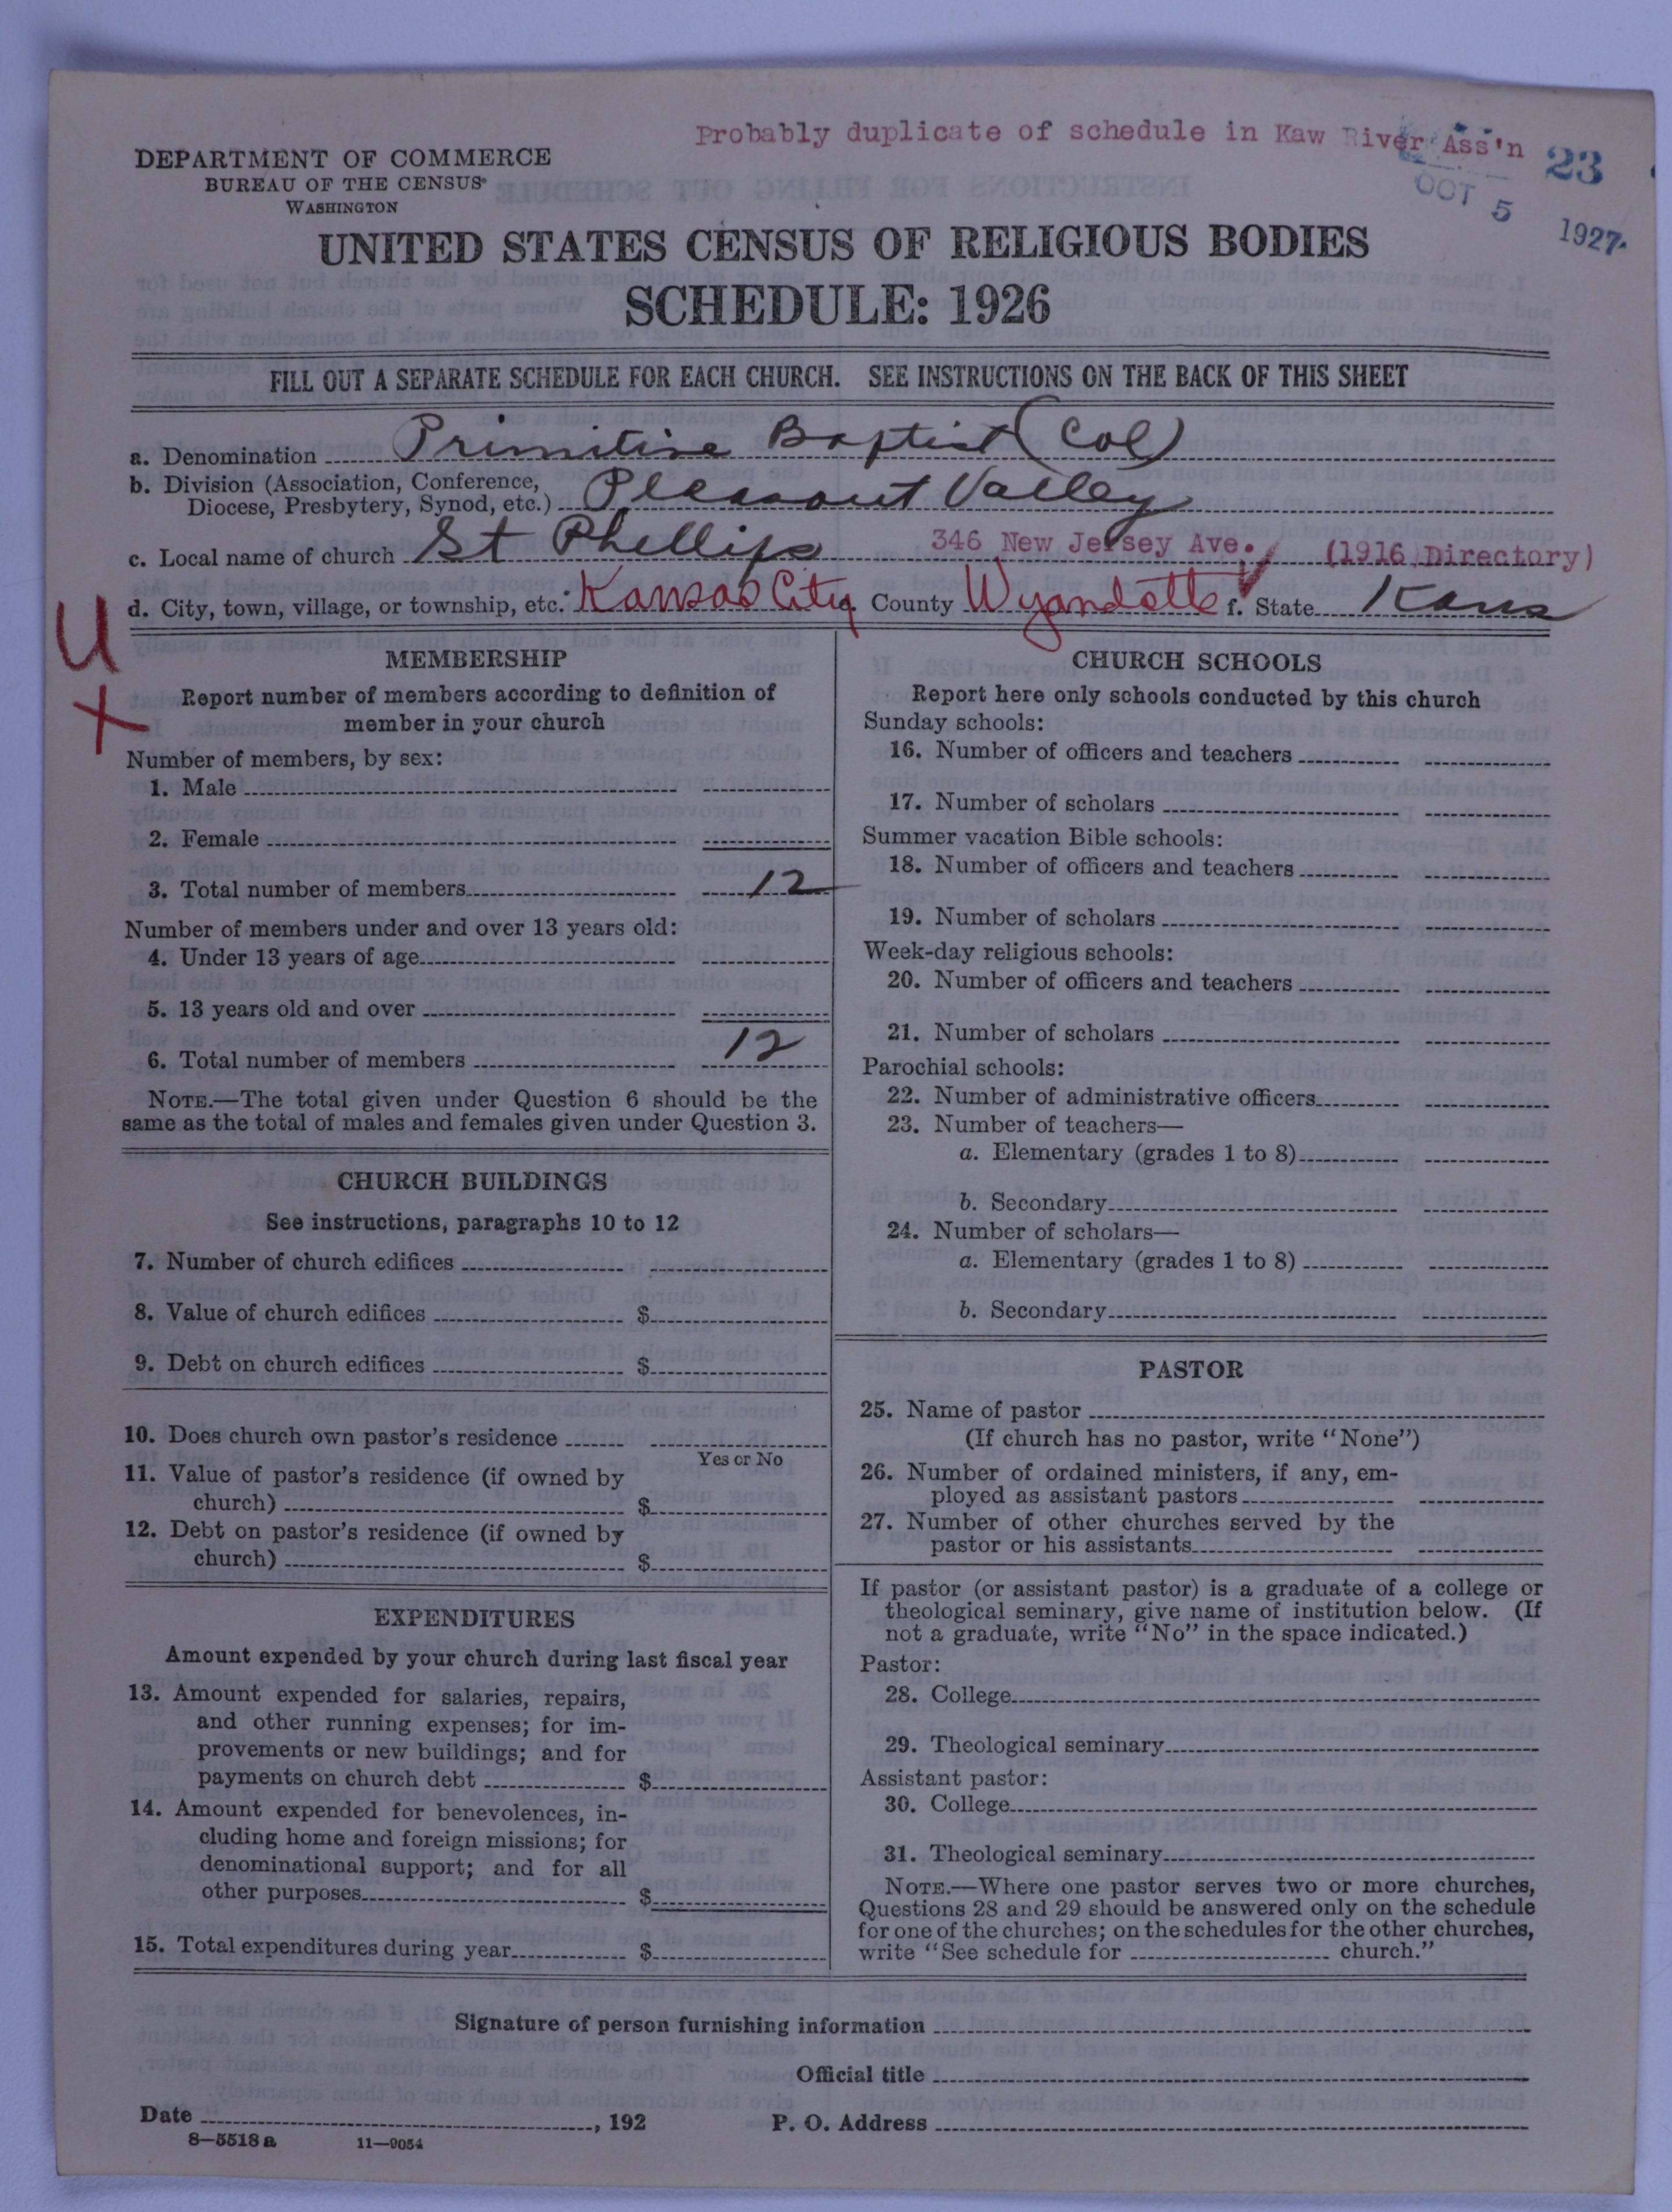 Probably duplicate of schedule in Kaw River Ass'n
23
OCT 5 1927
DEPARTMENT OF COMMERCE
BUREAU OF THE CENSUS
WASHINGTON
UNITED STATES CENSUS OF RELIGIOUS BODIES
SCHEDULE: 1926
FILL OUT A SEPARATE SCHEDULE FOR EACH CHURCH. SEE INSTRUCTIONS ON THE BACK OF THIS SHEET
a. Denomination Primitive Baptist (Col)
b. Division (Association, Conference,
Diocese, Presbytery, Synod, etc.) Pleasant Valley
c. Local name of church St Phellips 346 New Jersey Ave. (1916 Directory)
d. City, town, village, or township, etc. Kansas City e. County Wyandotte f. State Kans
U
X
MEMBERSHIP
Report number of members according to definition of
member in your church
Number of members, by sex:
1. Male
2. Female
3. Total number of members 12
Number of members under and over 13 years old:
4. Under 13 years of age
5. 13 years old and over
6. Total number of members 12
NOTE.—The total given under Question 6 should be the
same as the total of males and females given under Question 3.
CHURCH BUILDINGS
See instructions, paragraphs 10 to 12
7. Number of church edifices
8. Value of church edifices $
9. Debt on church edifices $
10. Does church own pastor's residence
Yes or No
11. Value of pastor's residence (if owned by
church) $
12. Debt on pastor's residence (if owned by
church) $
EXPENDITURES
Amount expended by your church during last fiscal year
13. Amount expended for salaries, repairs,
and other running expenses; for im-
provements or new buildings; and for
payments on church debt $
14. Amount expended for benevolences, in-
cluding home and foreign missions; for
denominational support; and for all
other purposes $
15. Total expenditures during year $
CHURCH SCHOOLS
Report here only schools conducted by this church
Sunday schools:
16. Number of officers and teachers
17. Number of scholars
Summer vacation Bible schools:
18. Number of officers and teachers
19. Number of scholars
Week-day religious schools:
20. Number of officers and teachers
21. Number of scholars
Parochial schools:
22. Number of administrative officers
23. Number of teachers—
a. Elementary (grades 1 to 8)
b. Secondary
24. Number of scholars—
a. Elementary (grades 1 to 8)
b. Secondary
PASTOR
25. Name of pastor
(If church has no pastor, write "None")
26. Number of ordained ministers, if any, em-
ployed as assistant pastors
27. Number of other churches served by the
pastor or his assistants
If pastor (or assistant pastor) is a graduate of a college or
theological seminary, give name of institution below. (If
not a graduate, write "No" in the space indicated.)
Pastor:
28. College
29. Theological seminary
Assistant pastor:
30. College
31. Theological seminary
NOTE.—Where one pastor serves two or more churches,
Questions 28 and 29 should be answered only on the schedule
for one of the churches; on the schedules for the other churches,
write "See schedule for church."
Signature of person furnishing information
Official title
Date , 192 P. O. Address
8—5518 a 11—9054